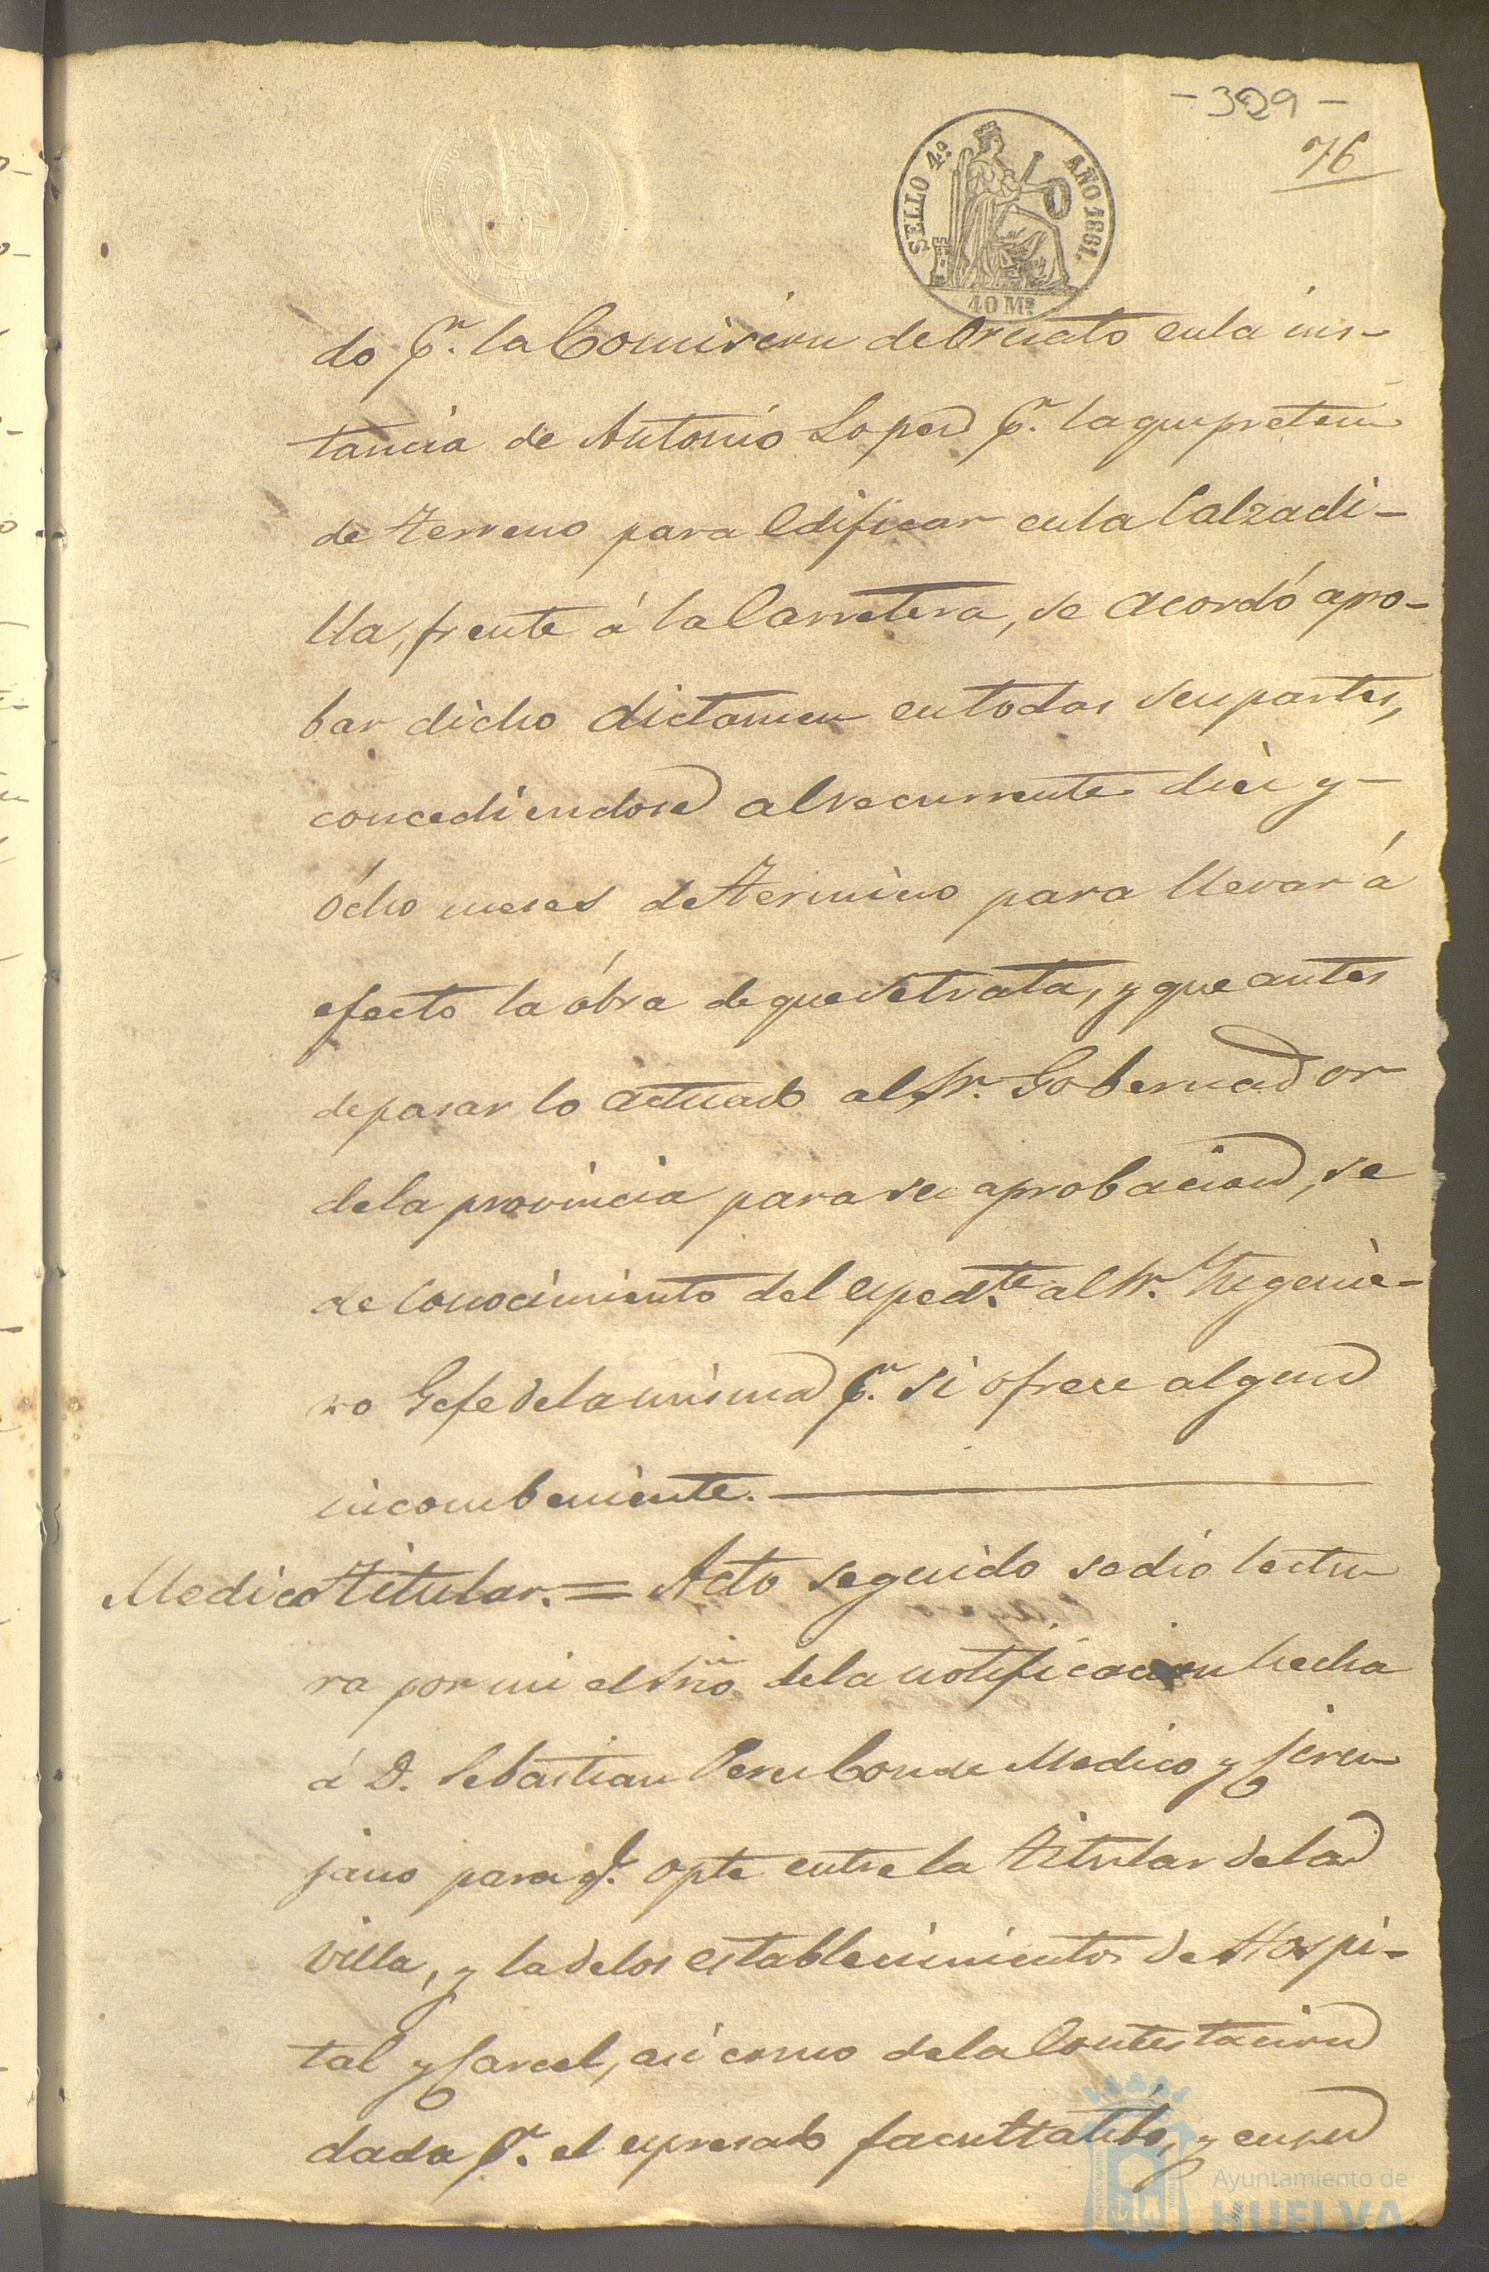 - 329 -
76
SELLO 4º.
AÑO 1861.
40 Ms.
do pr. la Comision de Ornato en la ins-
tancia de Antonio Lopez pr. la que preten
de terreno para Edificar en la Calzadi-
lla, frente á la Carretera, se acordó apro-
bar dicho dictamen en todas sus partes,
concediendose al recurrente diez y-
ócho meses de termino para llevar á
efecto la óbra de que se trata, y que antes
de pasar lo actuado al Sr. Gobernador
de la provincia para su aprobacion, se
de conocimiento del espedte. al Sr. Ingenie-
ro Gefe de la misma pr. si ofrece algun
incombeniente.
Medico titular. = Acto seguido se dió lectu
ra por mi el Srio. de la notificacion hecha
á D. Sebastian Perez Conde Medico y Ciru
jano para q. opte entre la titular de la
villa, y la de los establecimientos de Hospi-
tal y Carcel, asi como de la Contestacion
dada pr. el espresado facultatibo, y en su
Ayuntamiento de
HUELVA